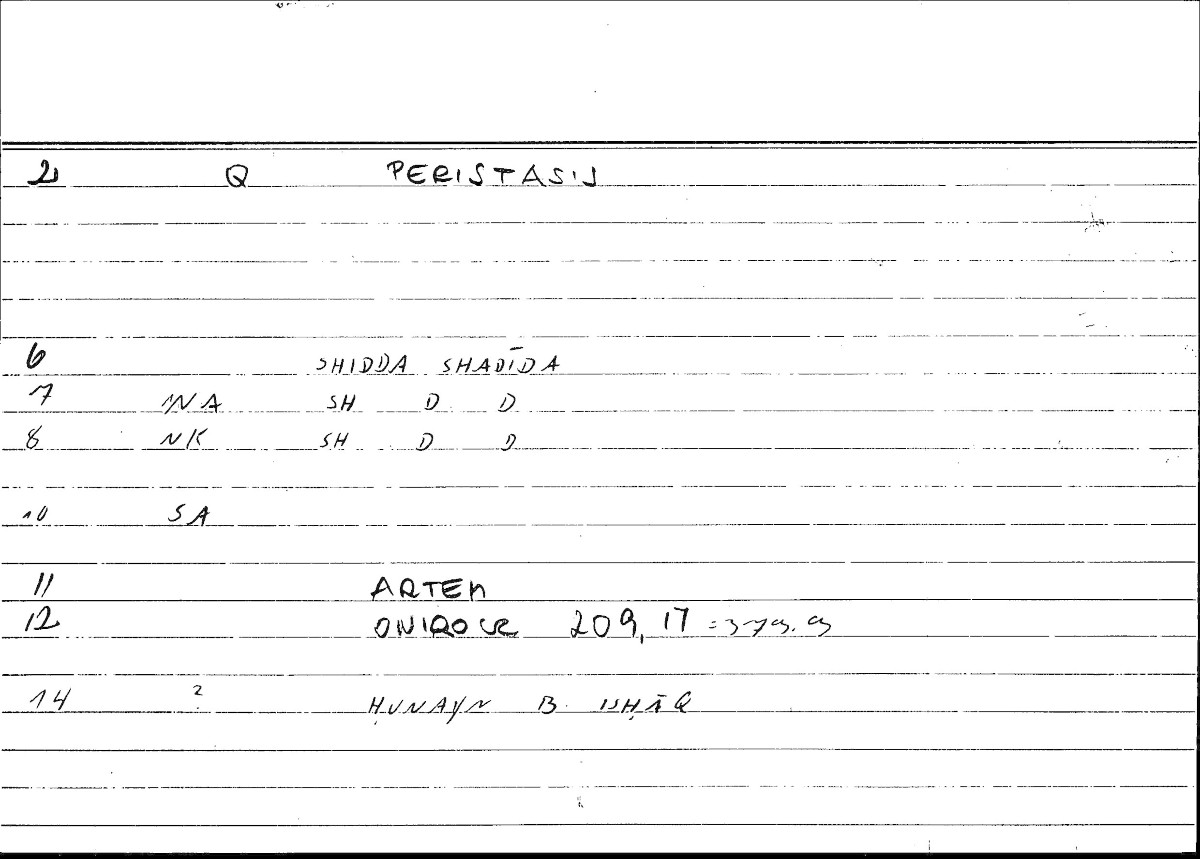 2 Q PERISTASIS
6 SHIDDA SHADĪDA
7 NA SH D D
8 NK SH D D
10 SA
11 ARTEM
12 ONIROCR 209, 17 = 379.9
14 ? ḤUNAYN B ISḤĀQ